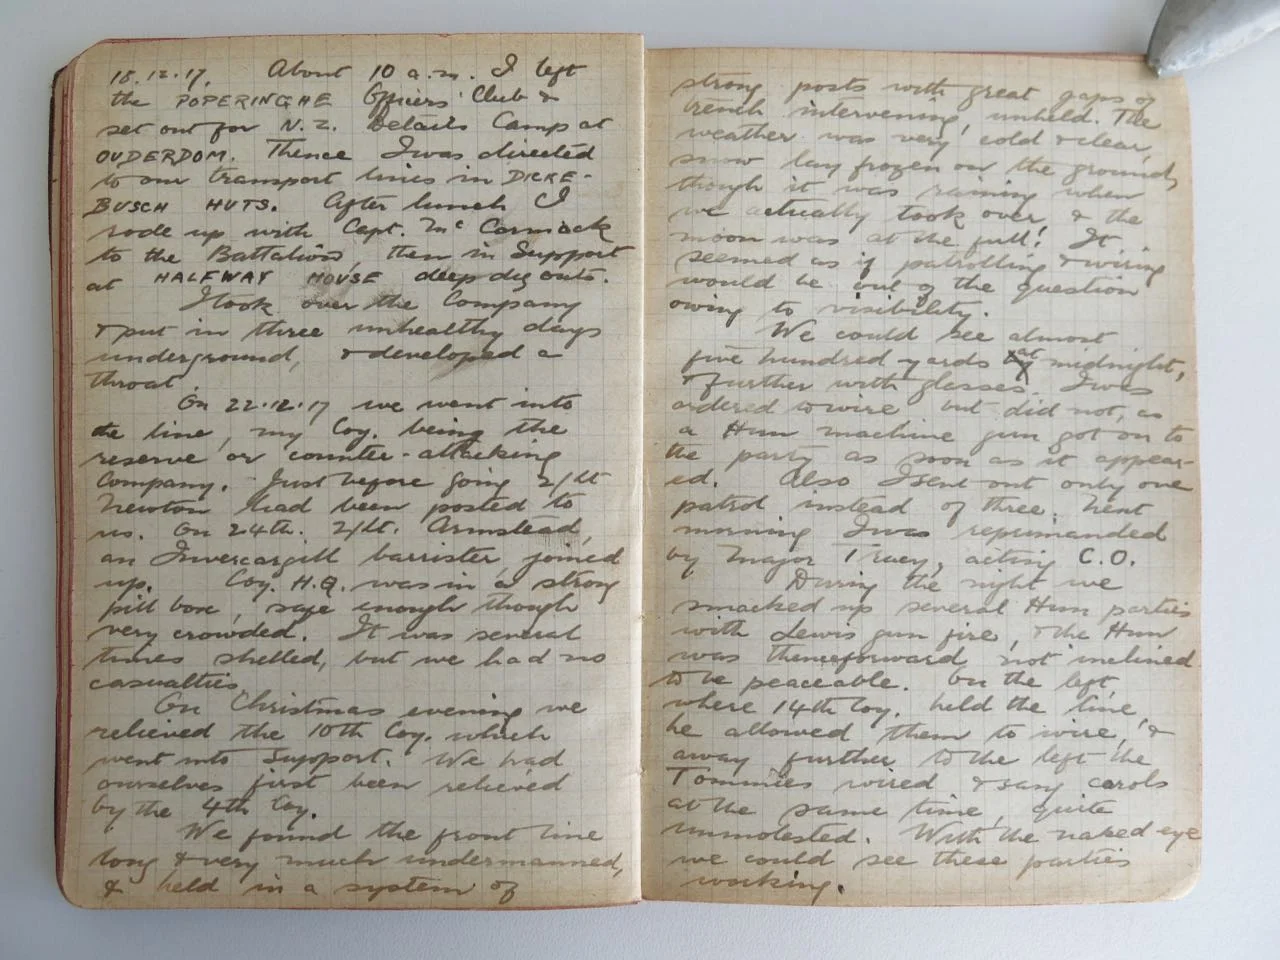 18.12.17. About 10 a.m. I left
the POPERINGHE Officers' Club &
set out for N.Z. Details Camp at
OUDERDOM. Thence I was directed
to our transport lines in DICKE-
BUSCH HUTS. After lunch I
rode up with Capt. Mc Cormack
to the Battalion, then in Support
at HALFWAY HOUSE deep dug outs.
I took over the Company
& put in three unhealthy days
underground, & developed a
throat.
On 22.12.17 we went into
the line, my Coy. being the
reserve or counter-attacking
Company. Just before going 2/Lt
Newton had been posted to
us. On 24th. 2/Lt. Armstead,
an Invercargill barrister, joined
up. Coy. H.Q. was in a strong
pill box, safe enough though
very crowded. It was several
times shelled, but we had no
casualties.
On Christmas evening we
relieved the 10th Coy. which
went into Support. We had
ourselves just been relieved
by the 4th Coy.
We found the front line
long & very much undermanned,
& held in a system of
strong posts with great gaps of
trench intervening, unheld. The
weather was very cold & clear,
snow lay frozen on the ground,
though it was raining when
we actually took over, & the
moon was at the full! It
seemed as if patrolling & wiring
would be out of the question
owing to visibility.
We could see almost
five hundred yards at midnight,
& further with glasses. I was
ordered to wire but did not, as
a Hun machine gun got on to
the party as soon as it appear-
ed. Also I sent out only one
patrol instead of three. Next
morning I was reprimanded
by Major Tracy, acting C.O.
During the night we
smacked up several Hun parties
with Lewis gun fire, & the Hun
was thenceforward not inclined
to be peaceable. On the left,
where 14th Coy. held the line,
he allowed them to wire, &
away further to the left the
Tommies wired & sang carols
at the same time, quite
unmolested. With the naked eye
we could see these parties
working.